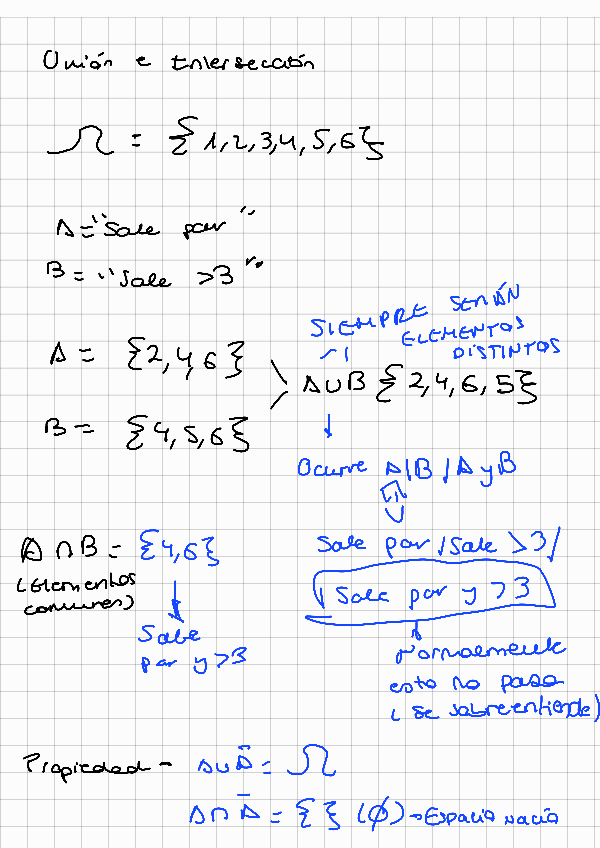 Unión e Intersección
Ω = {1,2,3,4,5,6}
A = "Sale par"
B = "Sale >3"
SIEMPRE SERÁN
ELEMENTOS
DISTINTOS
A = {2,4,6}
A∪B {2,4,6,5}
B = {4,5,6}
Ocurre A/B/A y B
A∩B = {4,6}
(Elementos
comunes)
Sale
par y >3
Sale par / Sale >3 /
Sale par y >3
Normalmente
esto no pasa
(se sobreentiende)
Propiedad - A∪Ā = Ω
A∩Ā = { } (∅) → Espacio vacío